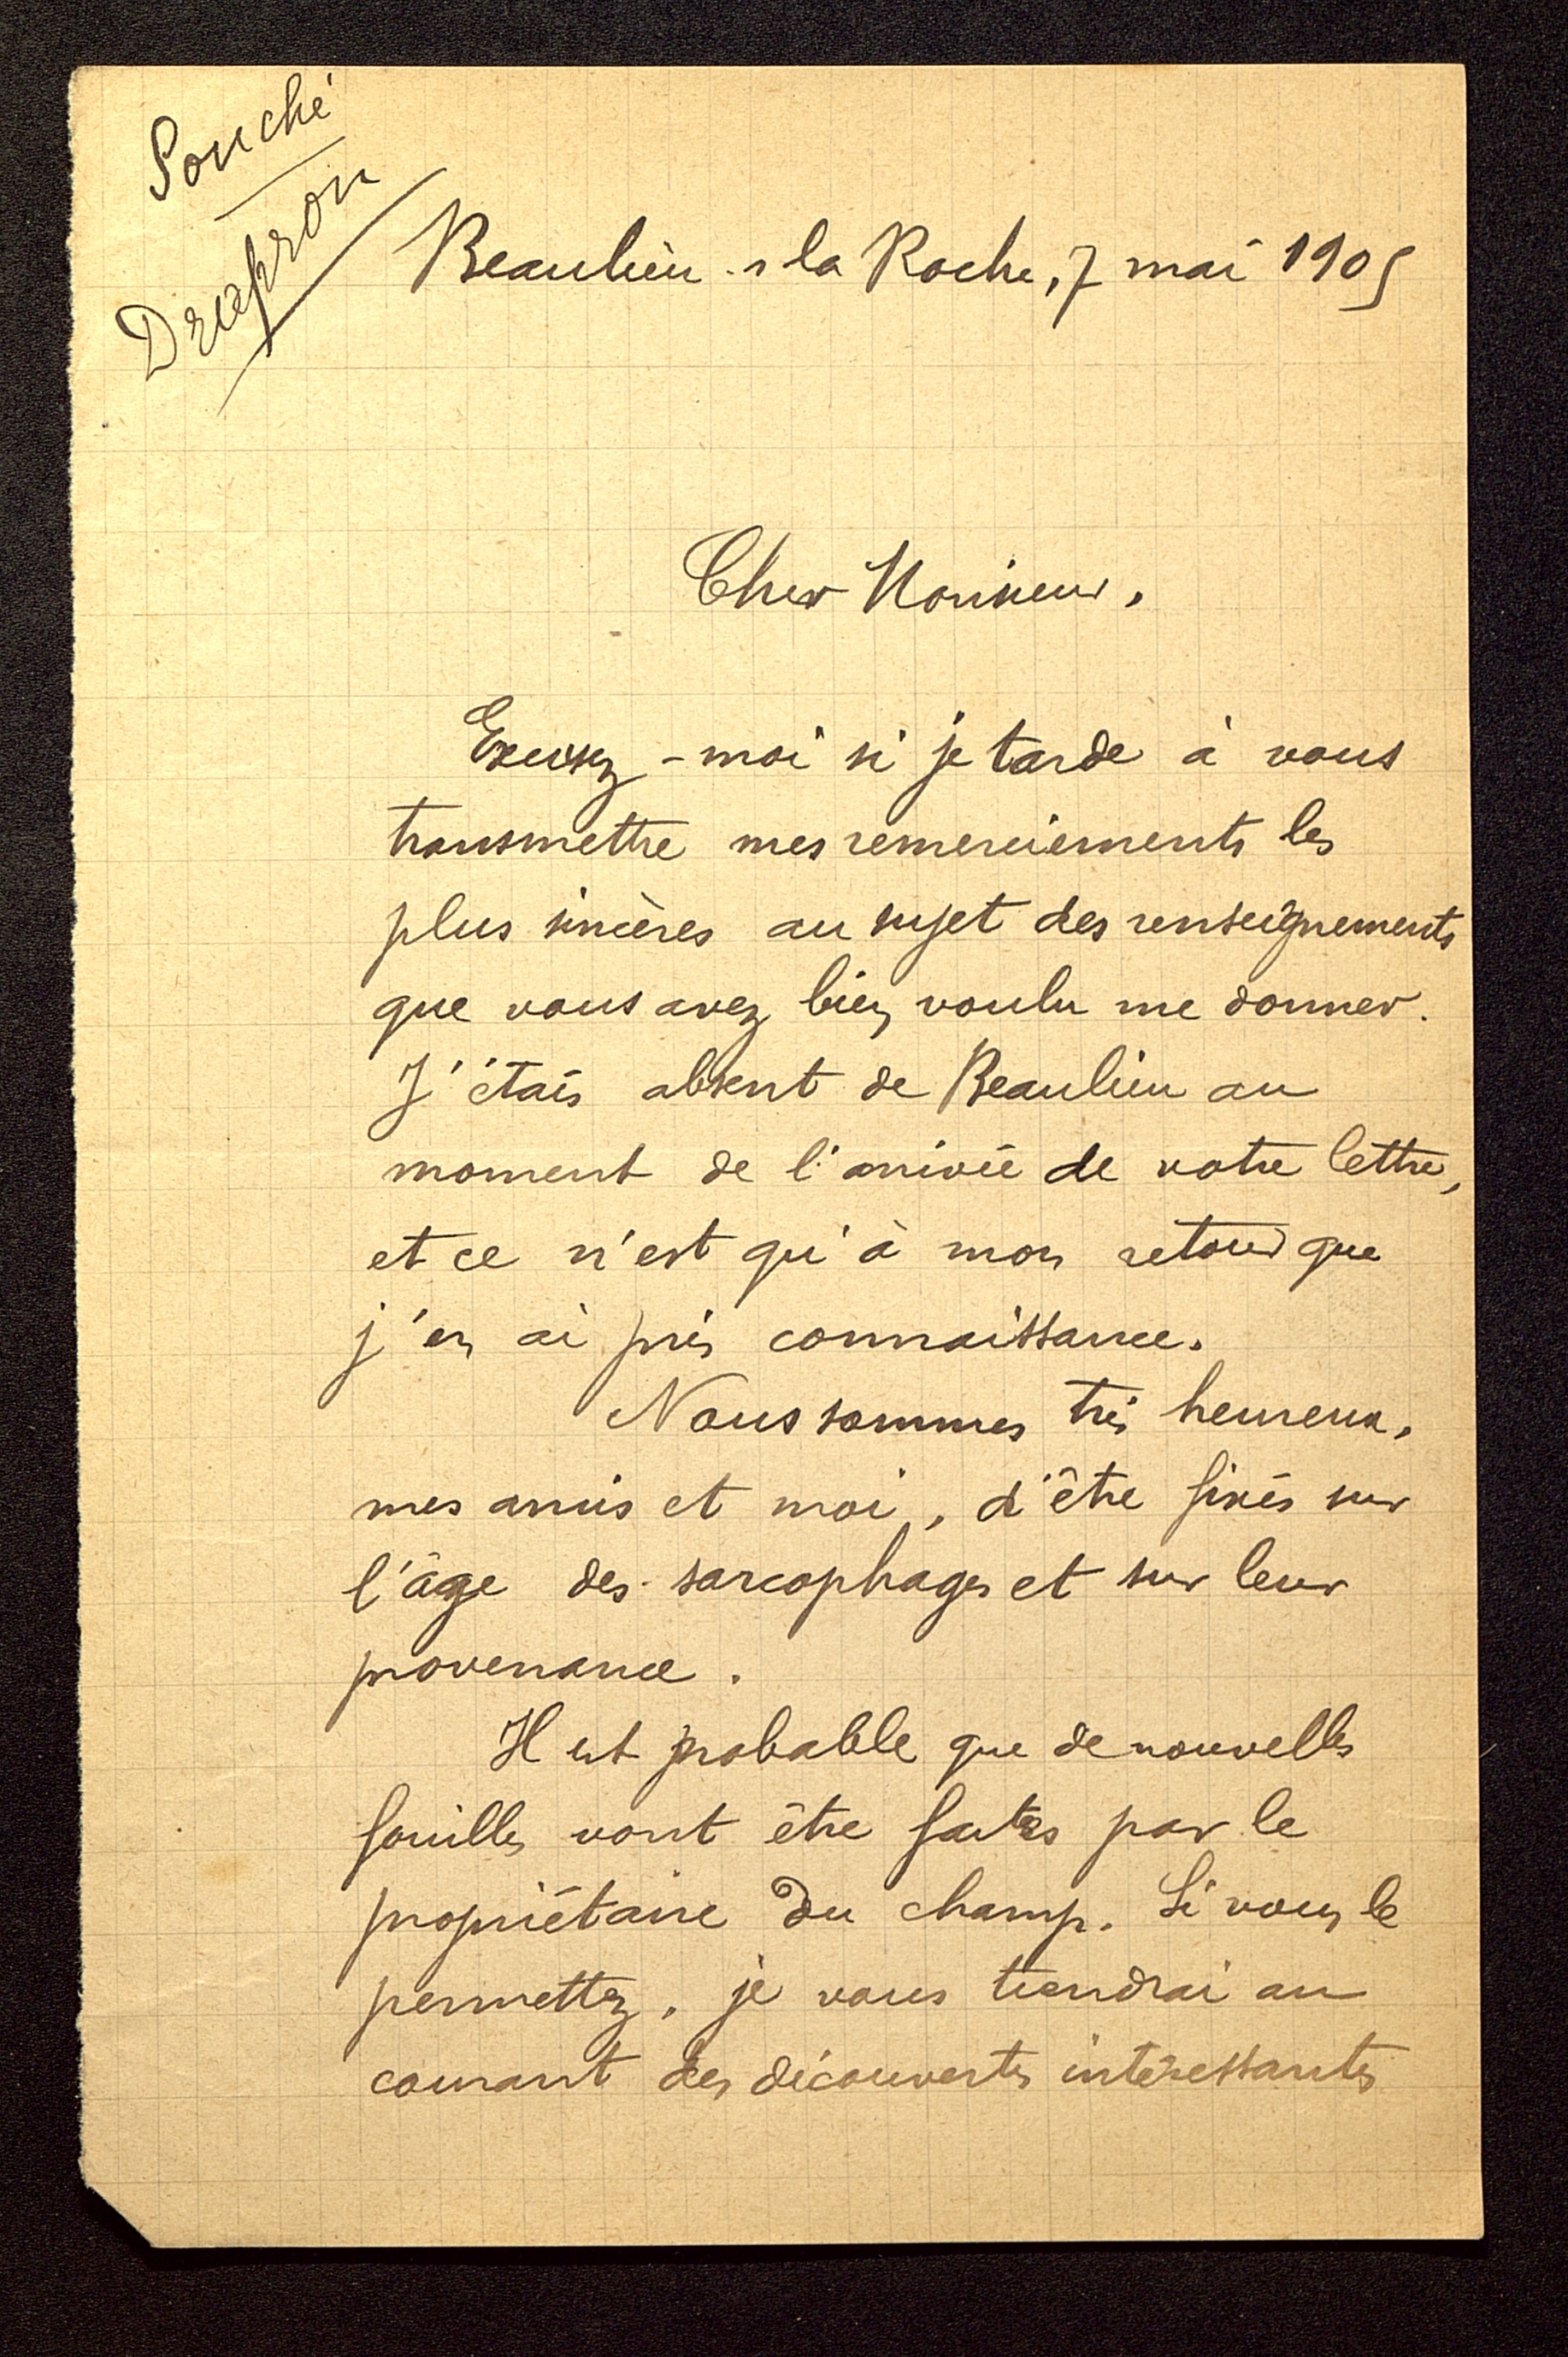 Souché
Drapron
Beaulieu-s la Roche, 7 mai 1905
Cher Monsieur,
Excusez-moi si je tarde à vous
transmettre mes remerciements les
plus sincères au sujet des renseignements
que vous avez bien voulu me donner.
J'étais absent de Beaulieu au
moment de l'arrivée de votre lettre,
et ce n'est qu'à mon retour que
j'en ai pris connaissance.
Nous sommes très heureux,
mes amis et moi, d'être fixés sur
l'âge des sarcophages et sur leur
provenance.
Il est probable que de nouvelles
fouilles vont être faites par le
propriétaire du champ. Si vous le
permettez, je vous tiendrai au
courant des découvertes intéressantes